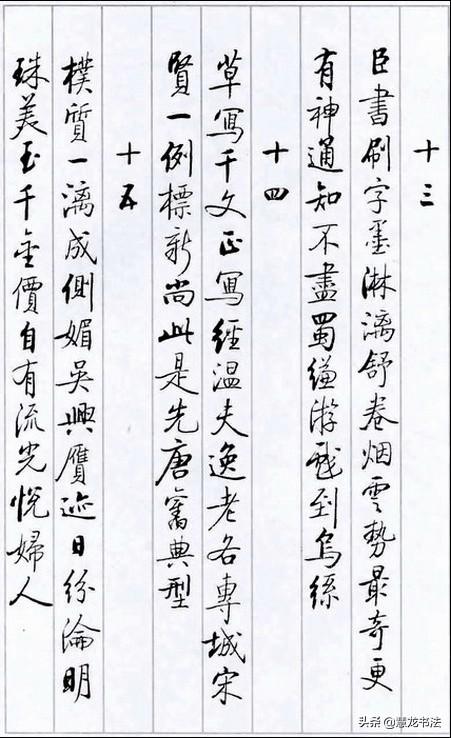 十三
臣書刷字墨淋漓舒卷烟雲勢最奇更
有神通知不盡蜀縑游戲到烏絲
十四
草寫千文正寫經温夫逸老各專城宋
賢一例標新尚此是先唐舊典型
十五
樸質一漓成側媚吳興贋迹日紛淪明
珠美玉千金價自有流光悦婦人
头条 @慧龙书法